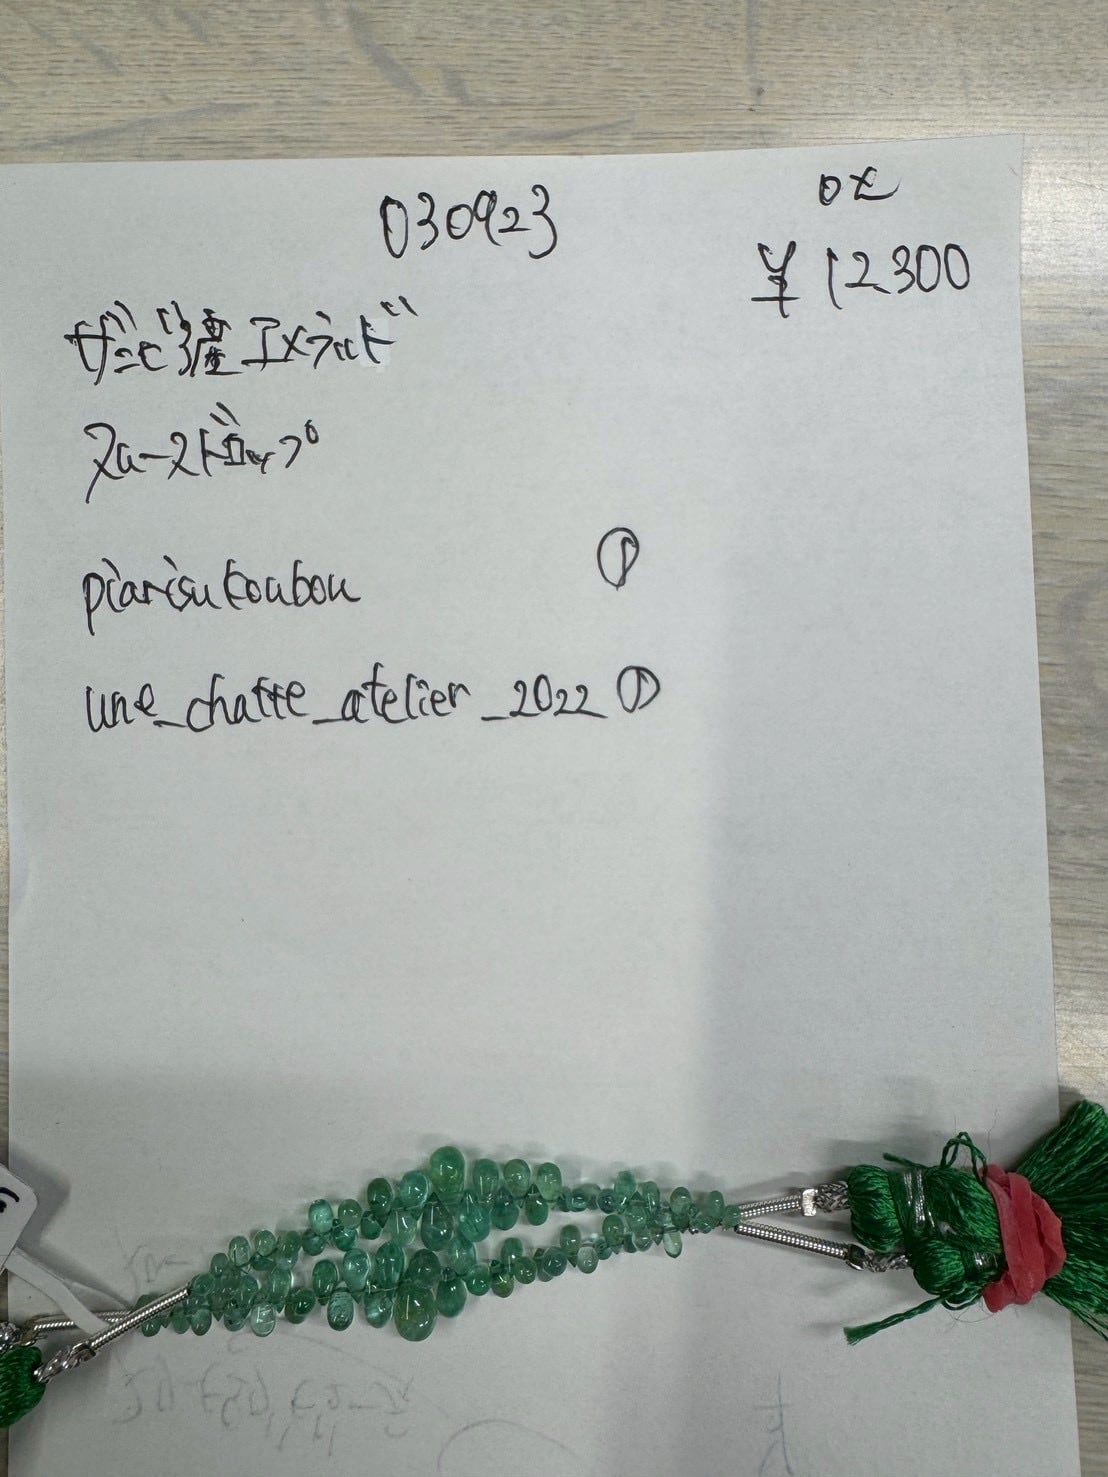 030923
OX
¥12300
ザンビア産エメラルド
スムースドロップ
piarisukoubou ①
une_chatte_atelier_2022 ①